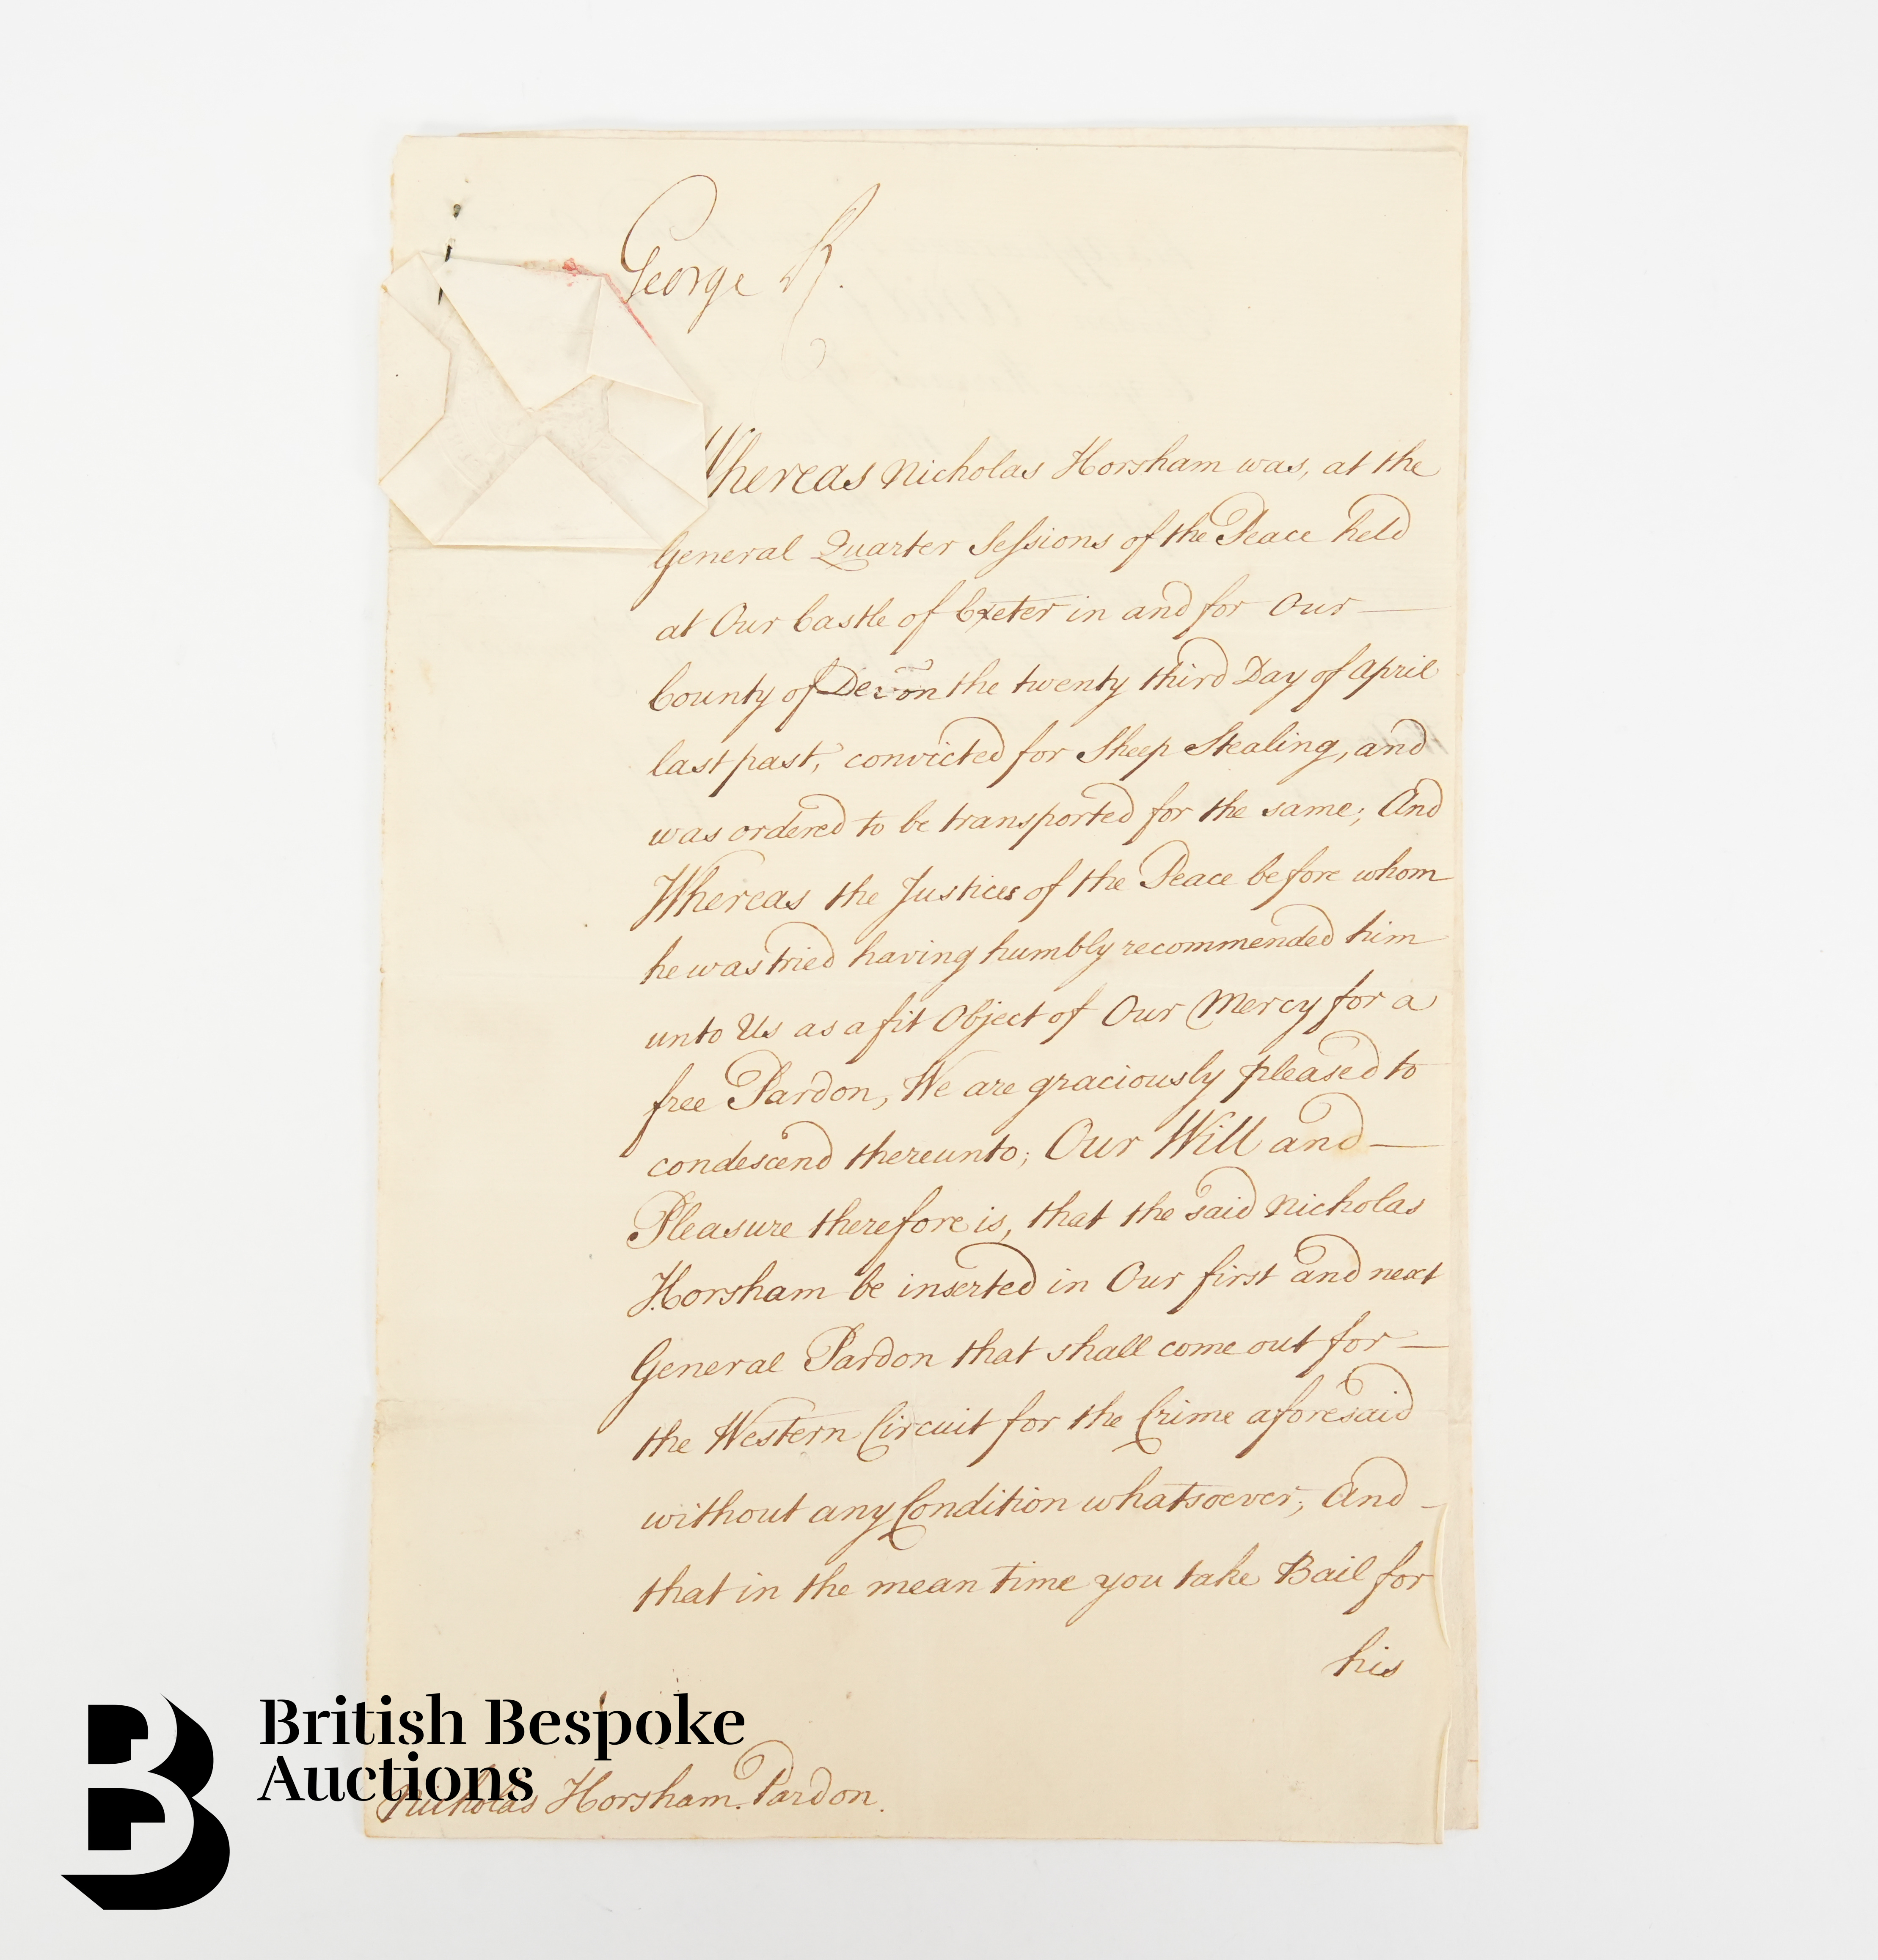 George R.
Whereas Nicholas Horsham was, at the
General Quarter Sessions of the Peace held
at Our Castle of Exeter in and for Our
County of Devon the twenty third Day of April
last past, convicted for Sheep Stealing, and
was ordered to be transported for the same; And
Whereas the Justices of the Peace before whom
he was tried having humbly recommended him
unto Us as a fit Object of Our Mercy for a
free Pardon, We are graciously pleased to
condescend thereunto; Our Will and
Pleasure therefore is, that the said Nicholas
Horsham be inserted in Our first and next
General Pardon that shall come out for
the Western Circuit for the Crime aforesaid
without any Condition whatsoever; And
that in the mean time you take Bail for
his
Nicholas Horsham. Pardon.
British Bespoke
Auctions